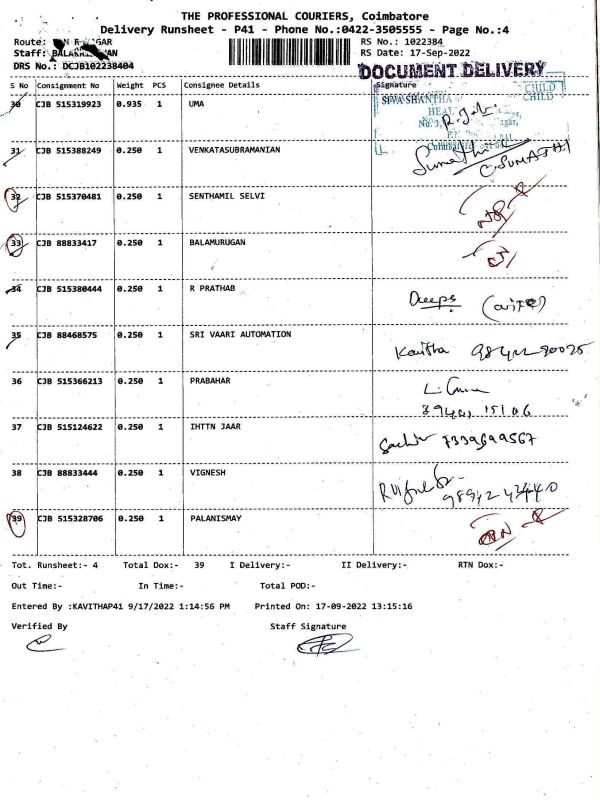 THE PROFESSIONAL COURIERS, Coimbatore
Delivery Runsheet - P41 - Phone No.:0422-3505555 - Page No.:4
Route: GAR
RS No.: 1022384
Staff:
RS Date: 17-Sep-2022
DRS No.: DCJB102238404
DOCUMENT DELIVERY
S No Consignment No Weight PCS Consignee Details Signature
30 CJB 515319923 0.935 1 UMA
SIVA SHANTHA CHILD
HEAL CHILD
No. 3,
31 CJB 515388249 0.250 1 VENKATASUBRAMANIAN Sumathi
C SUMATHI
32 CJB 515370481 0.250 1 SENTHAMIL SELVI
33 CJB 88833417 0.250 1 BALAMURUGAN
34 CJB 515380444 0.250 1 R PRATHAB Deepa (wife)
35 CJB 88468575 0.250 1 SRI VAARI AUTOMATION Kavitha
36 CJB 515366213 0.250 1 PRABAHAR
37 CJB 515124622 0.250 1 IHTTN JAAR 7339699567
38 CJB 88833444 0.250 1 VIGNESH
39 CJB 515328706 0.250 1 PALANISMAY
Tot. Runsheet:- 4 Total Dox:- 39 I Delivery:- II Delivery:- RTN Dox:-
Out Time:- In Time:- Total POD:-
Entered By :KAVITHAP41 9/17/2022 1:14:56 PM Printed On: 17-09-2022 13:15:16
Verified By Staff Signature